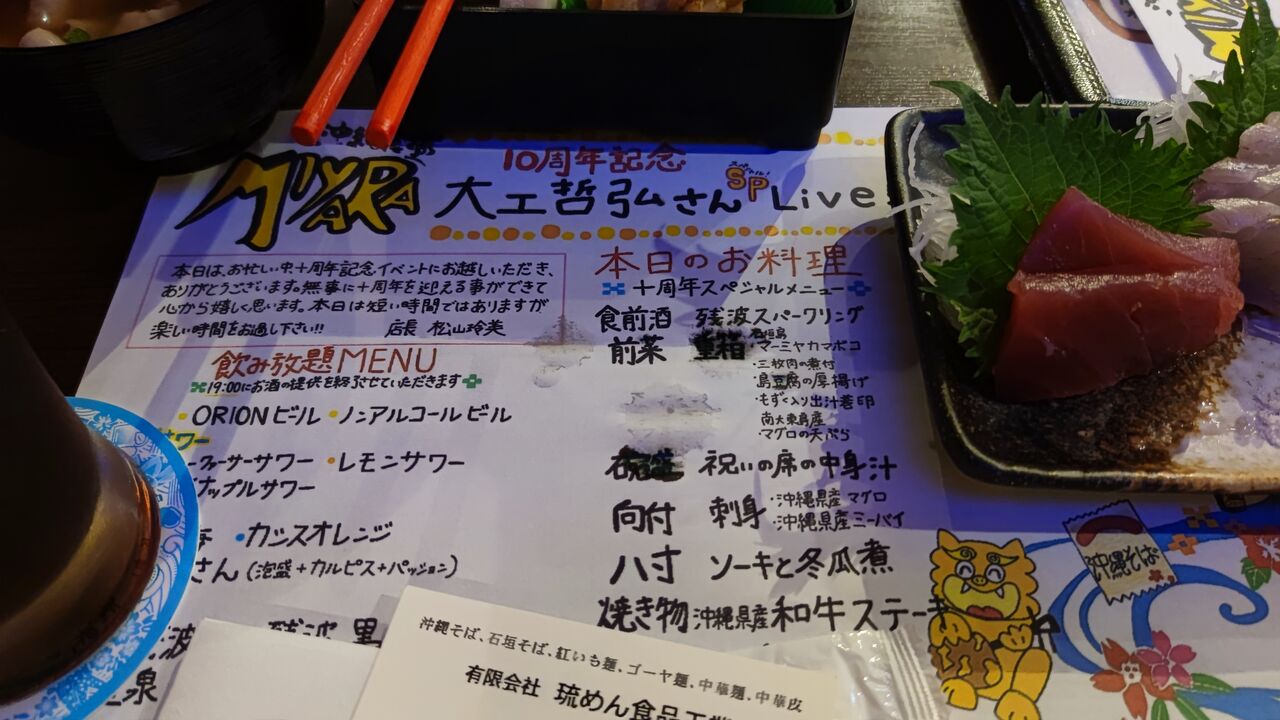 10周年記念
MIYARA
大工哲弘さん SP Live
本日は、お忙しい中十周年記念イベントにお越しいただき、
ありがとうございます。無事に十周年を迎える事ができて
心から嬉しく思います。本日は短い時間ではありますが
楽しい時間をお過し下さい!!
店長 松山玲美
飲み放題MENU
19:00にお酒の提供を終了させていただきます
・ORIONビール ・ノンアルコールビール
サワー
ークヮーサーサワー ・レモンサワー
イナップルサワー
・カシスオレンジ
さん (泡盛+カルピス+パッション)
波 残波 黒
泉
本日のお料理
十周年スペシャルメニュー
食前酒 残波スパークリング
前菜 重箱 石垣島
・マーミヤカマボコ
・三枚肉の煮付
島豆腐の厚揚げ
・もずく入り出汁巻卵
南大東島産
・マグロの天ぷら
祝いの席の中身汁
向付 刺身 ・沖縄県産マグロ
・沖縄県産ミーバイ
八寸 ソーキと冬瓜煮
焼き物 沖縄県産和牛ステーキ
沖縄そば
沖縄そば、石垣そば、紅いも麺、ゴーヤ麺、中華麺、中華皮
有限会社 琉めん食品工業